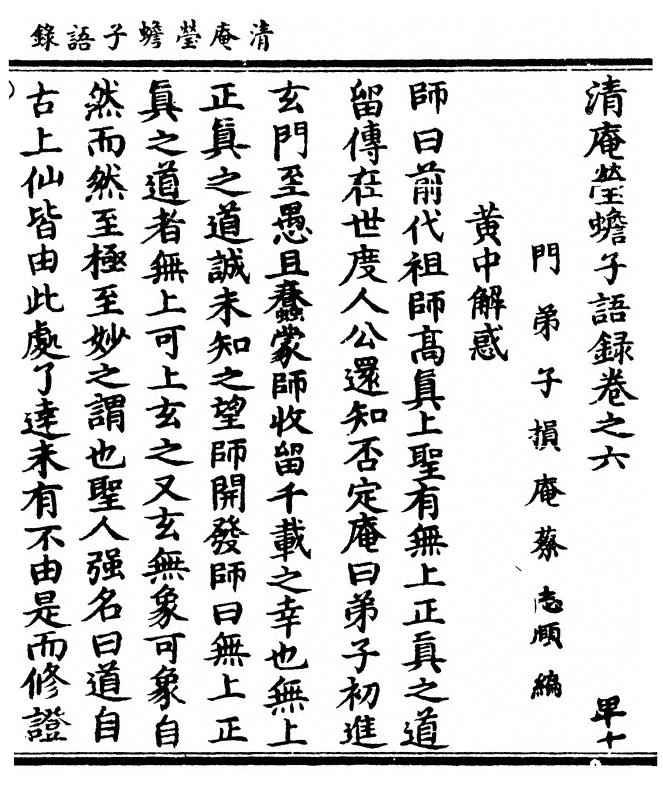 清庵瑩蟾子語錄
清庵瑩蟾子語録卷之六
早十
門弟子損庵蔡志頤編
黃中解惑
師曰前代祖師高眞上聖有無上正眞之道
留傳在世度人公還知否定庵曰弟子初進
玄門至愚且蠢蒙師收留千載之幸也無上
正眞之道誠未知之望師開發師曰無上正
眞之道者無上可上玄之又玄無象可象自
然而然至極至妙之謂也聖人强名曰道自
古上仙皆由此處了達未有不由是而修證